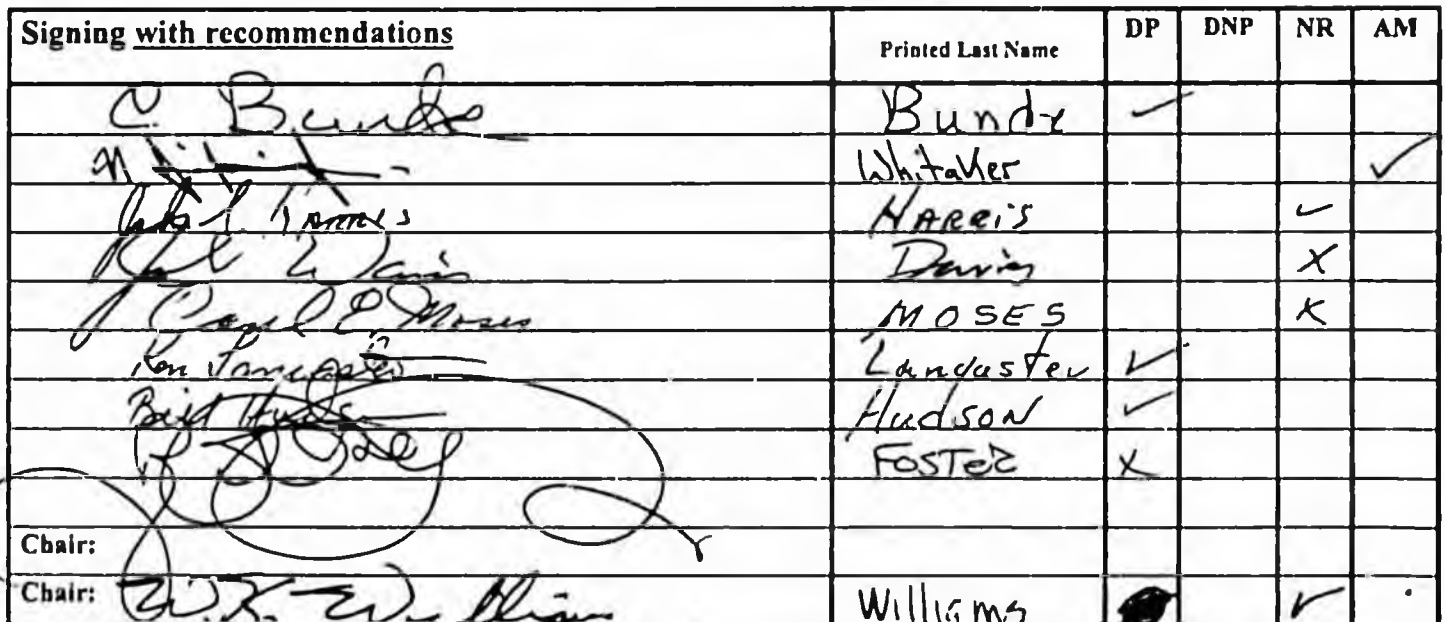 Signing with recommendations Printed Last Name DP DNP NR AM
C. Bunde Bunde ✓
Whitaker ✓
Harris HARRIS ✓
Davis Davis X
Carl E. Moses MOSES X
Ken Lancaster Lancaster ✓
Bill Hudson Hudson ✓
FOSTER X
Chair:
Chair: W.K. Williams Williams ✓